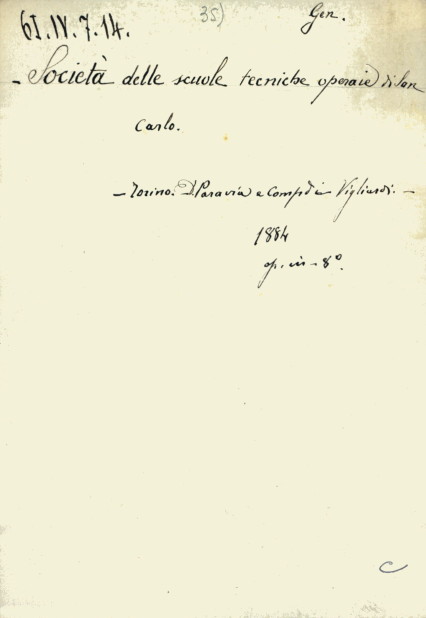 61.IV.7.14.
35)
Gen.
- Società delle scuole tecniche operaie di San
Carlo.
- Torino. Paravia e Comp di Vigliardi. -
1884
op. in - 8º.
C